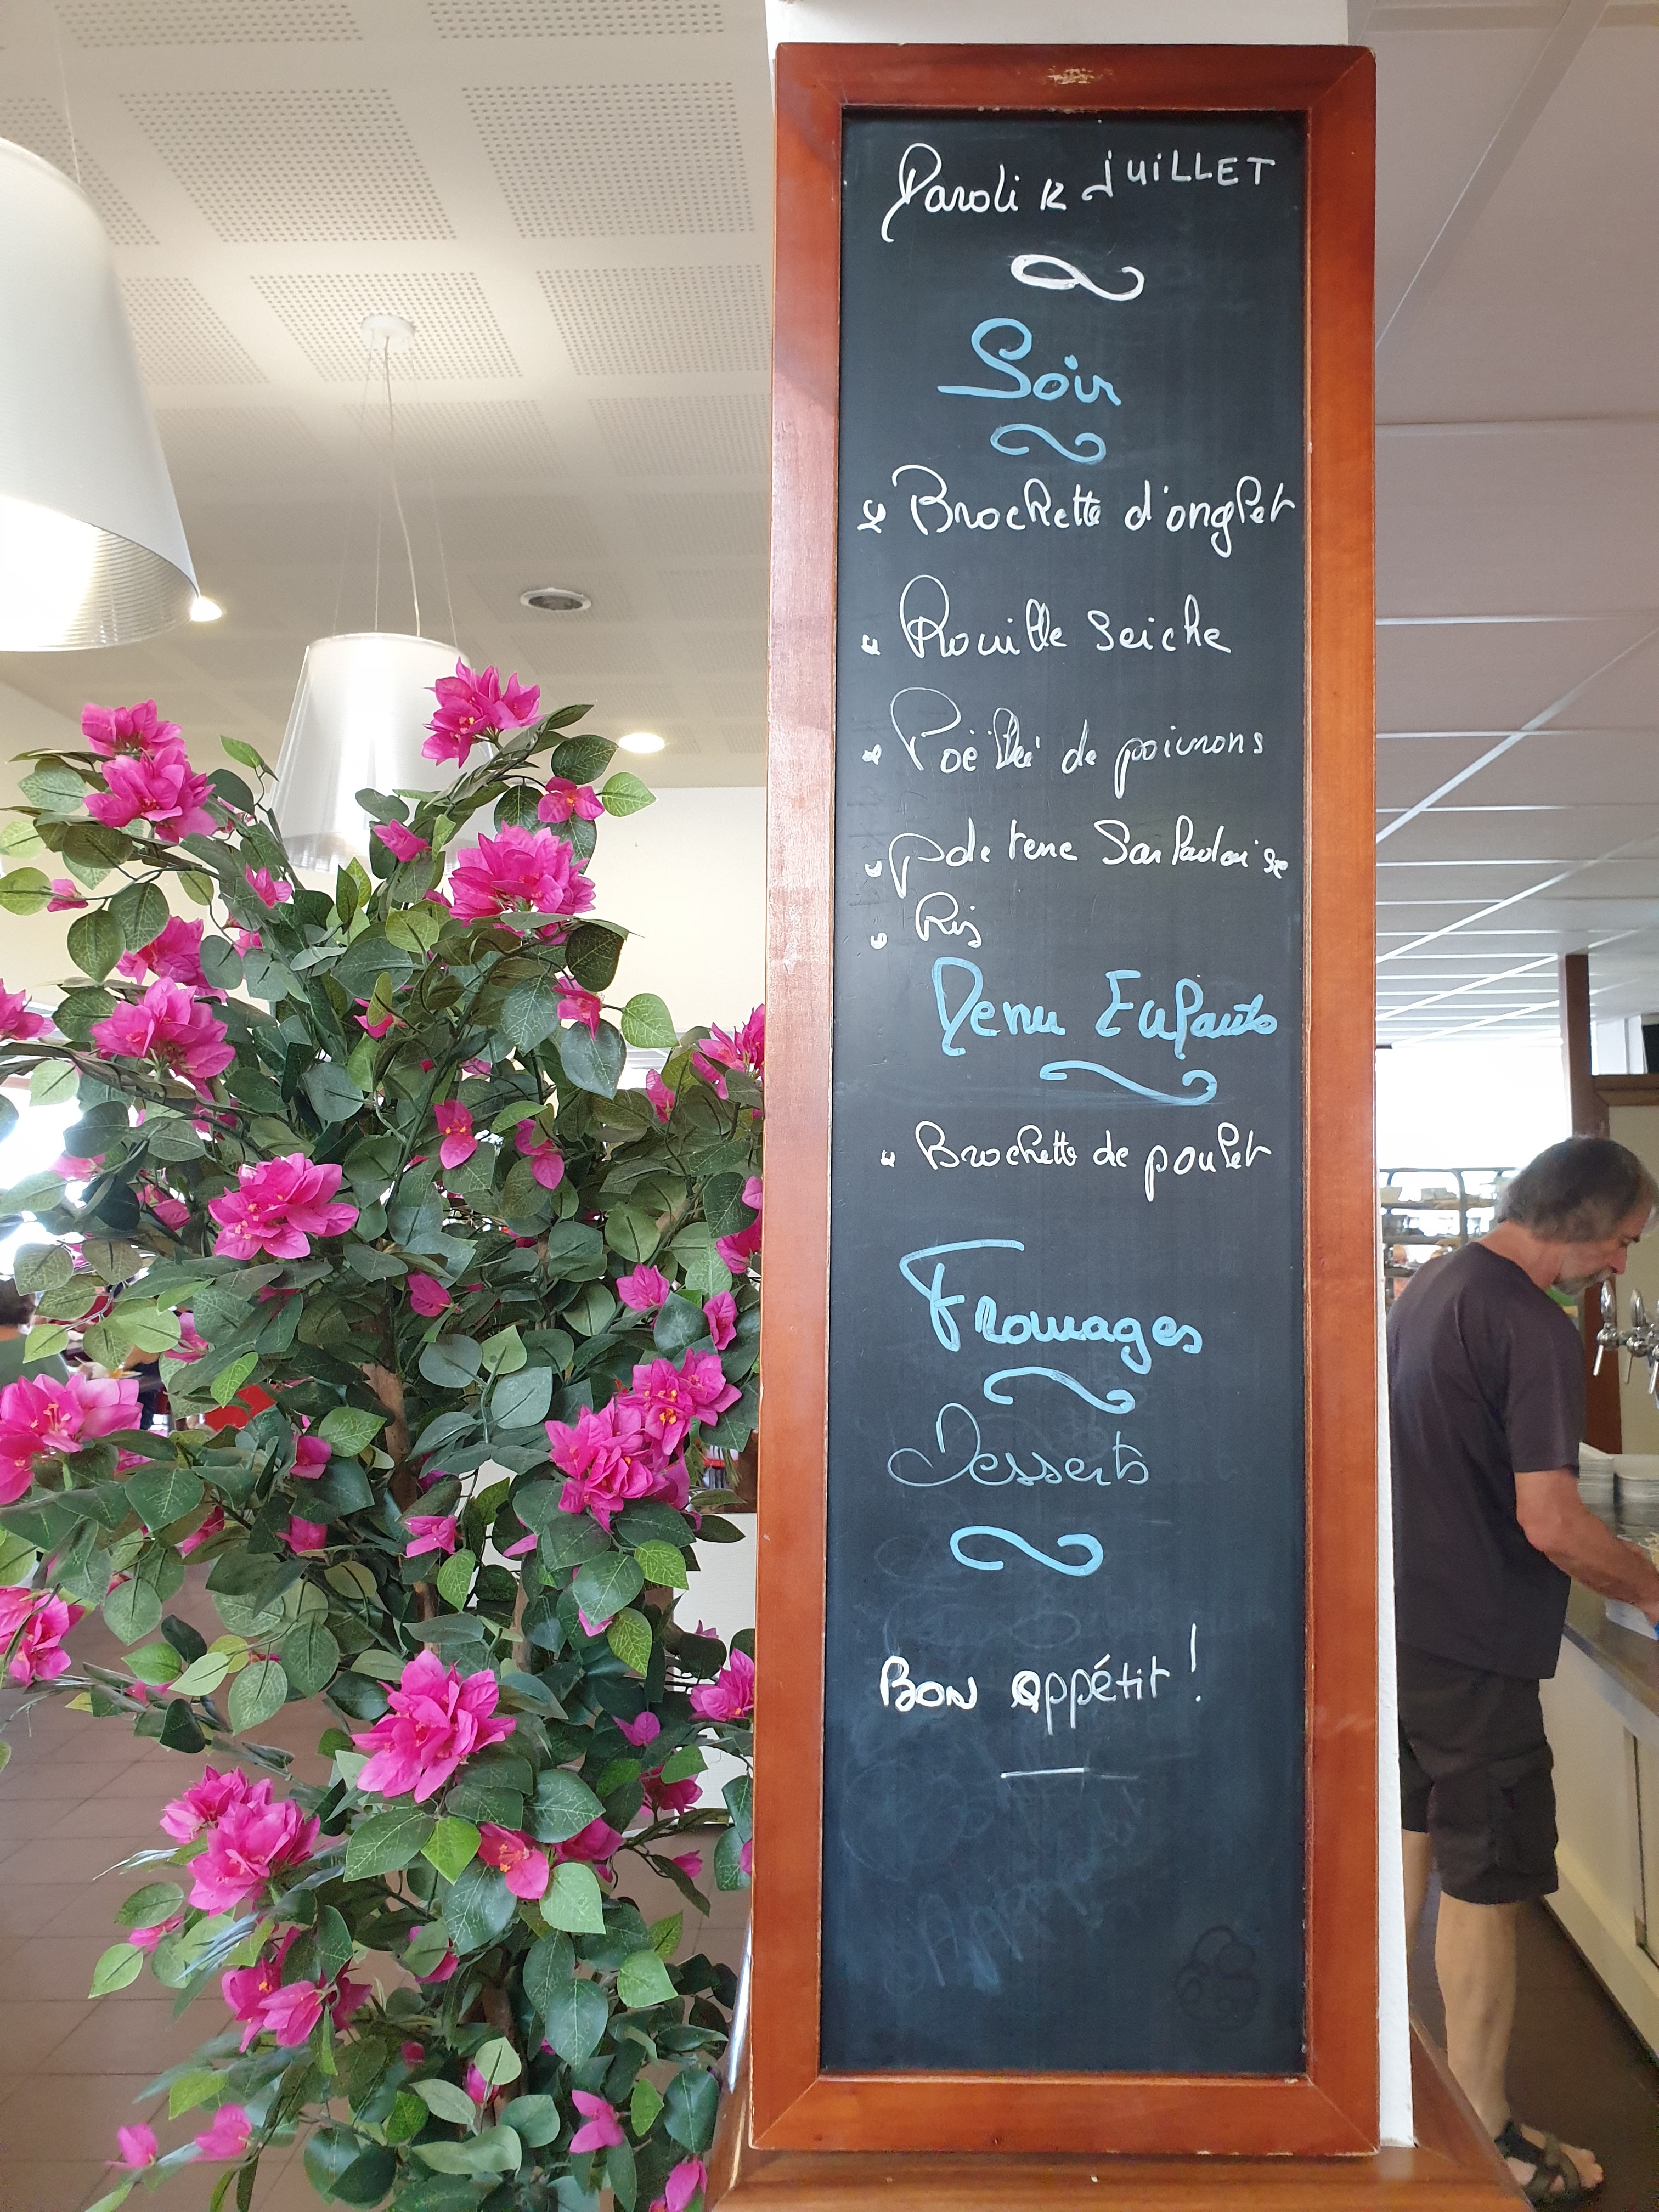 Mardi 12 JUILLET
Soir
Brochette d'onglet
Rouille Seiche
Poëlée de poivrons
P de terre Sarladaise
Ris
Menu Enfants
Brochette de poulet
Fromages
Desserts
BON appétit !